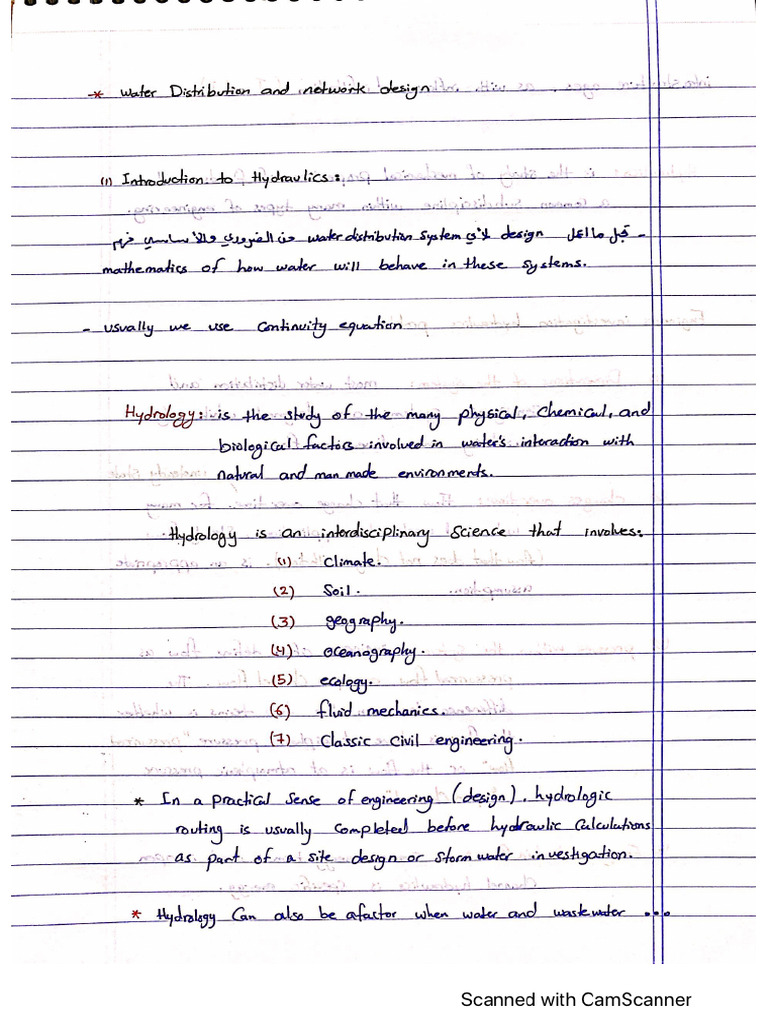 * Water Distribution and network design
(1) Introduction to Hydraulics:
- قبل ما اعمل design لأي water distribution system من الضروري والأساسي فهم
mathematics of how water will behave in these systems.
- usually we use Continuity equation
Hydrology: is the study of the many physical, Chemical, and
biological factors involved in water's interaction with
natural and man made environments.
. Hydrology is an interdisciplinary Science that involves:
(1) Climate.
(2) Soil.
(3) geography.
(4) oceanography.
(5) ecology.
(6) fluid mechanics.
(7) Classic Civil engineering.
* In a practical Sense of engineering (design), hydrologic
routing is usually completed before hydraulic Calculations
as part of a site design or storm water investigation.
* Hydrology Can also be a factor when water and wastewater ...
Scanned with CamScanner